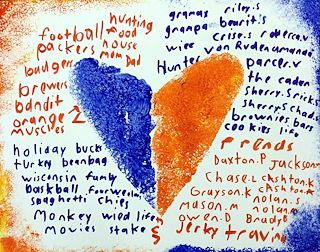 football hunting
packers food
house
badgers mom Dad
brewers
bandit
orange
muscles
holiday bucks
turkey beanbag
wisconsin family
baskball fourweeling
spaghetti chips
Monkey wild life
movies stake
gramas riley.s
granpa
wier von Ruden amanda
Hunter parcer.v
the caden
sherry.S ricks
sherry.S chad.s
brownies bars
cookies life
friends
Daxton.P Jackson.m
Chase.L Cashton.K
Grayson.K
mason.m nolan.s
owen.D Brady.B
Jerky